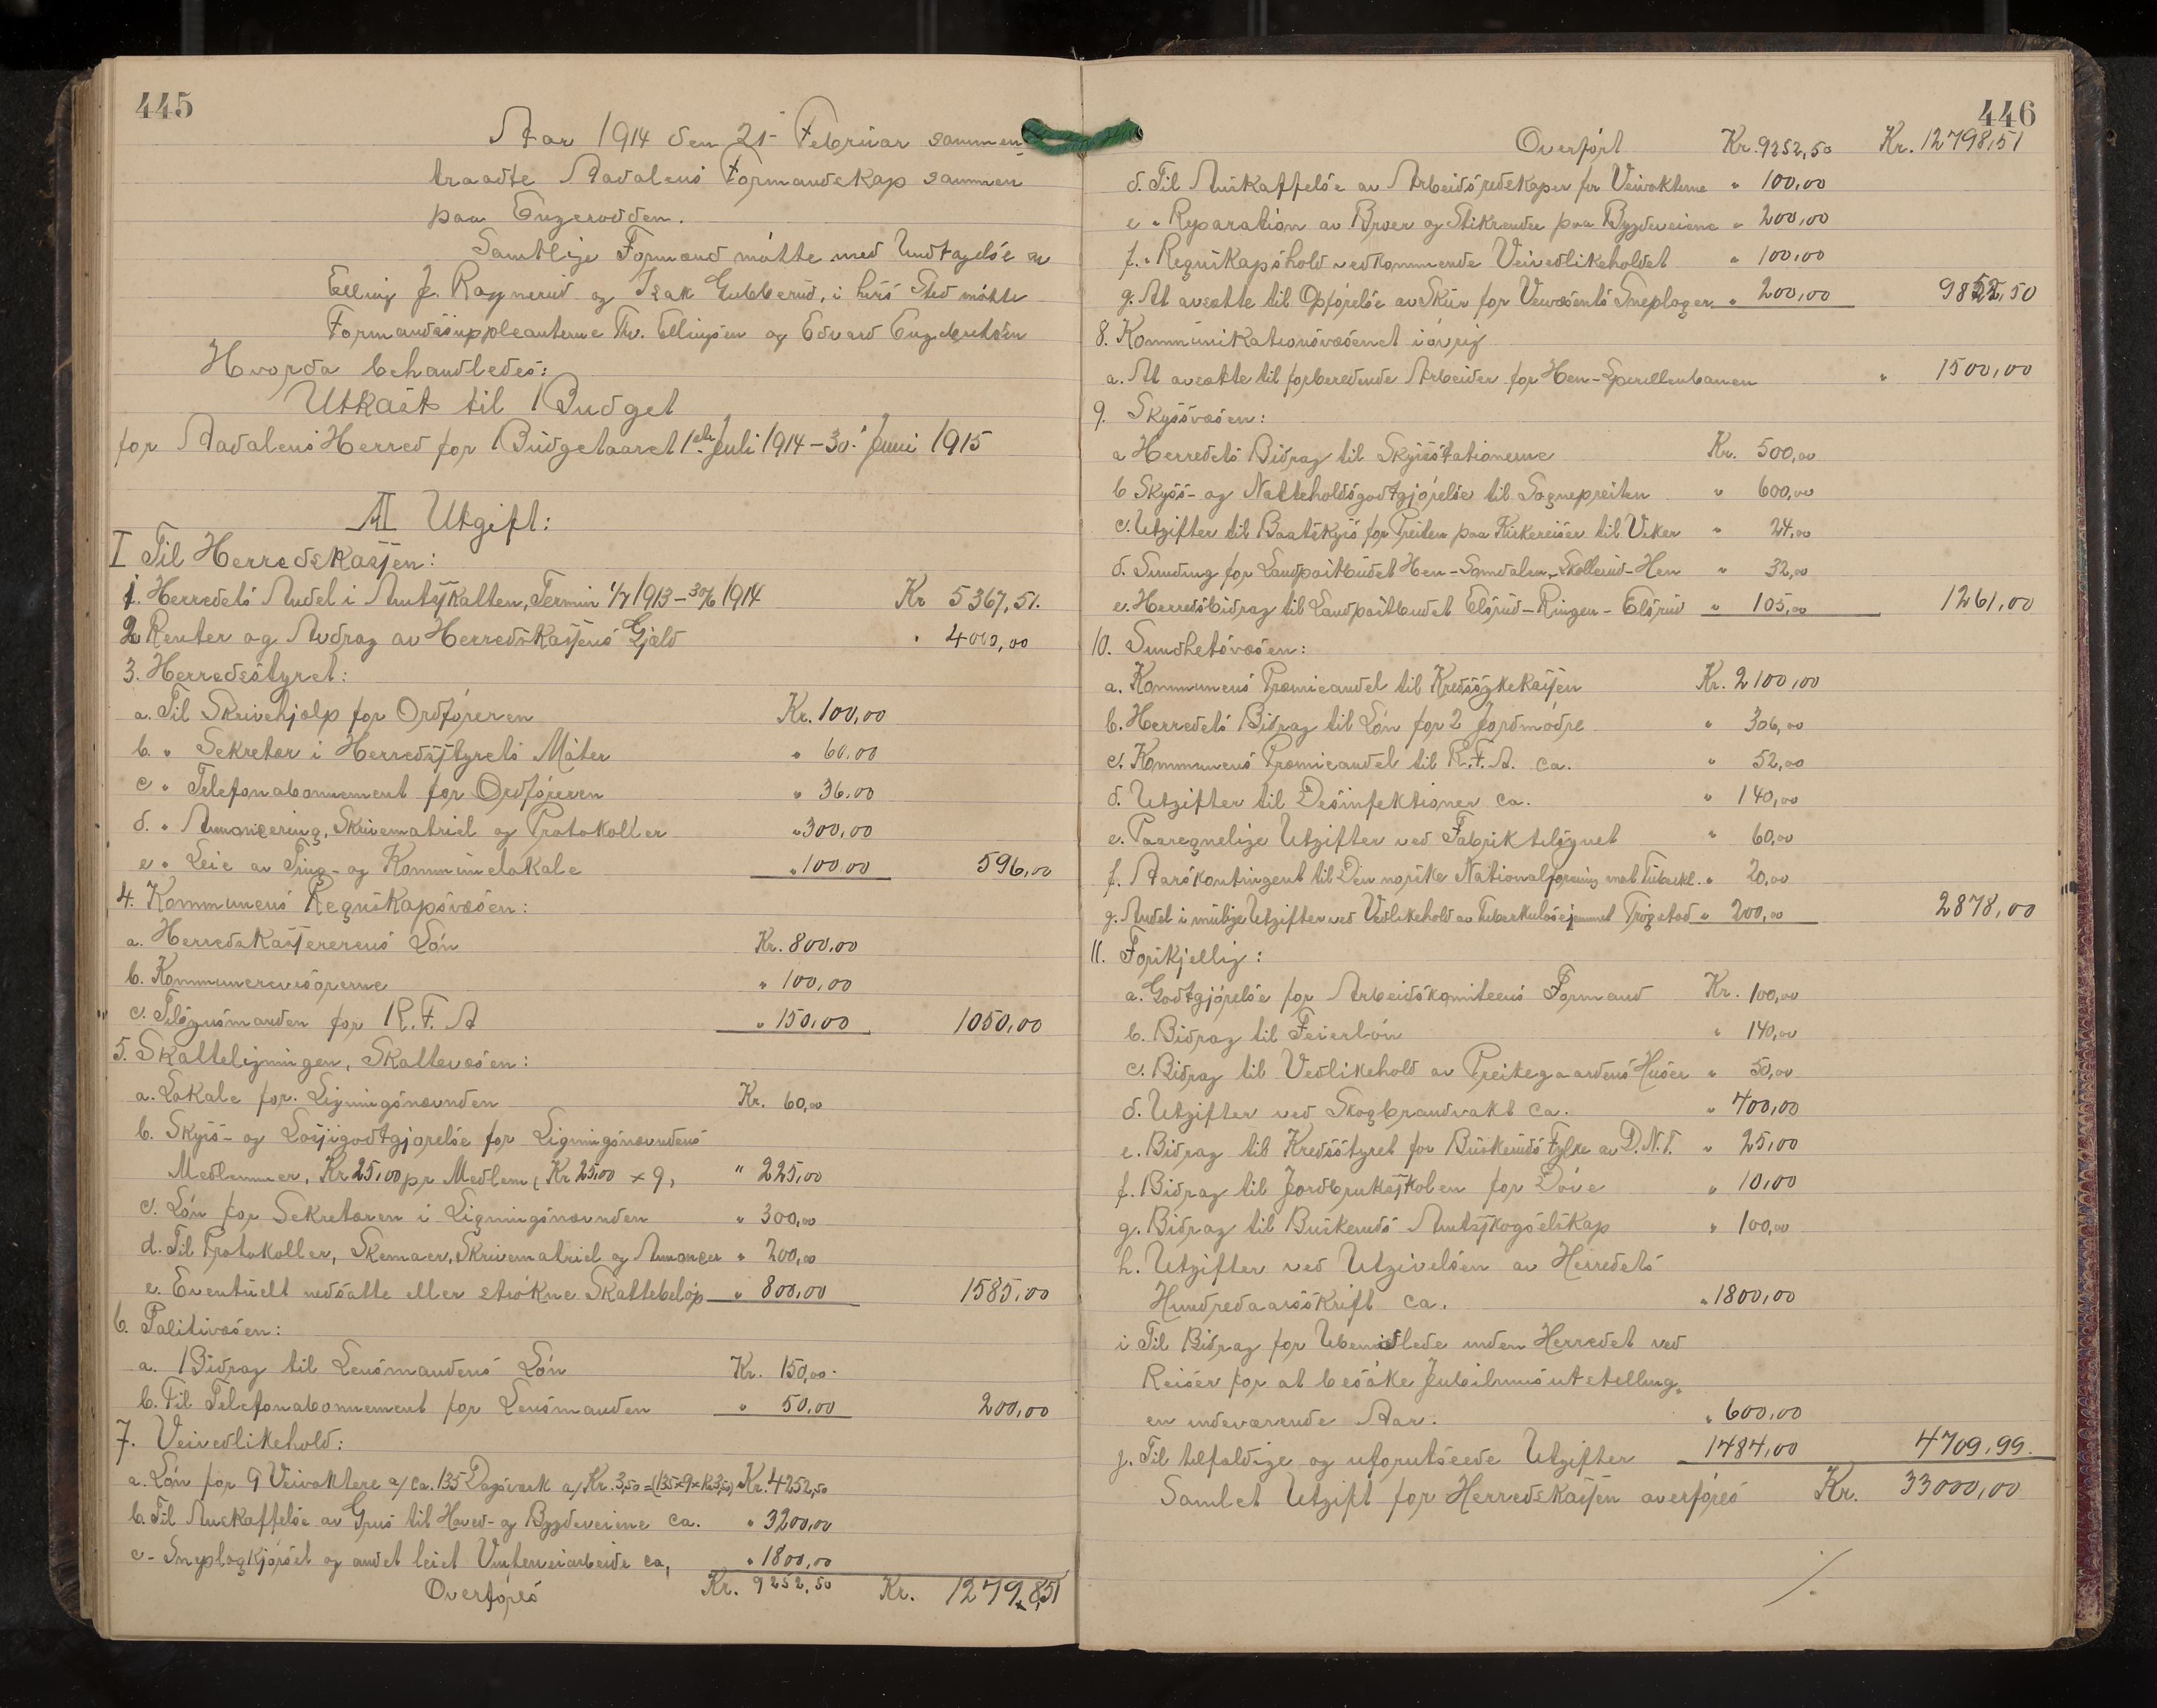 445
Aar 1914 den 21 Februar sammen-
traadte Aadalens Formandskap sammen
paa Engerodden.
Samtlige Formænd møtte med Undtagelse av
Elling J. Ragnerud og Isak Gubberud, i hvis Sted møtte
Formandssuppleanterne Thv. Ellingsen og Edvard Engebretsen
Hvorda behandledes:
Utkast til Budget
for Aadalens Herred for Budgetaaret 1ste Juli 1914 – 30. Juni 1915
A Utgift:
I Til Herredskassen:
1. Herredets Andel i Amtsskatten, Termin 1/7 1913 – 30/6 1914 Kr 5367,51.
2 Renter og Avdrag av Herredskassens Gjæld " 4000,00
3. Herredsstyret:
a. Til Skrivehjælp for Ordføreren Kr. 100,00
b. " Sekretær i Herredsstyrets Møter " 60.00
c " Telefonabonnement for Ordføreren " 36.00
d. " Annoncering, Skrivematriel og Protokoller " 300,00
e " Leie av Ting- og Kommunelokale " 100,00 596,00
4. Kommunens Regnskapsvæsen:
a. Herredskassererens Løn Kr. 800,00
b. Kommunerevisorerne " 100,00
c. Tilsynsmanden for R. F. A " 150,00 1050,00
5. Skatteligningen, Skattevæsen:
a. Lokale for Ligningsnævnden Kr. 60,00
b. Skyss- og Losjigodtgjørelse for Ligningsnævndens
Medlemmer, Kr 25,00 pr Medlem (Kr 25.00 × 9, " 225,00
c. Løn for Sekretæren i Ligningsnævnden " 300,00
d. Til Protokoller, Skemaer, Skrivematriel og Annoncer " 200,00
e. Eventuelt nedsatte eller strøkne Skattebeløp " 800,00 1585,00
6. Politivæsen:
a. Bidrag til Lensmandens Løn Kr. 150,00
b. Til Telefonabonnement for Lensmanden " 50.00 200,00
7. Veivedlikehold:
a. Løn for 9 Veivoktere a/ ca. 135 Dagsverk a/ Kr. 3,50 = (135 × 9 × Kr 3,50) Kr. 4252,50
b. Til Anskaffelse av Grus til Hoved- og Bygdeveiene ca. " 3200,00
c - Sneplogkjørsel og andet leiet Vinterveiarbeide ca, " 1800,00
Overføres Kr. 9252,50 Kr. 12798,51
446
Overført Kr. 9252,50 Kr. 12798,51
d. Til Anskaffelse av Arbeidsredskaper for Veivokterne " 100,00
e " Reparation av Broer og Stikrender paa Bygdeveiene " 200,00
f. " Regnskapshold vedkommende Veivedlikeholdet " 100,00
g. At avsætte til Opførelse av Skur for Veivæsenets Sneploger " 200,00 9852,50
8. Kommunikationsvæsenet iøvrig
a. At avsætte til forberedende Arbeider for Hen-Sperillenbanen " 1500,00
9. Skyssvæsen:
a Herredets Bidrag til Skysstationerne Kr. 500,00
b Skyss- og Natteholdsgodtgjørelse til Sognepresten " 600,00
c. Utgifter til Baatskyss for Presten paa Kirkereiser til Viker " 24,00
d. Sunding for Landpostbudet Hen-Somdalen-Skollerud-Hen " 32,00
e. Herredsbidrag til Landpostbudet Elsrud-Ringen-Elsrud " 105,00 1261,00
10. Sundhetsvæsen:
a. Kommunens Præmieandel til Kredssykekassen Kr. 2100,00
b. Herredets Bidrag til Løn for 2 Jordmødre " 306,00
c. Kommunens Præmieandel til R.F.A. ca. " 52,00
d. Utgifter til Desinfektioner ca. " 140,00
e. Paaregnelige Utgifter ved Fabriktilsynet " 60,00
f. Aarskontingent til Den norske Nationalforening mot Tuberkl. " 20,00
g. Andel i mulige Utgifter ved Vedlikehold av Tuberkulosehjemmet Trøgstad " 200,00 2878,00
11. Forskjellig:
a. Godtgjørelse for Arbeidskomiteens Formand Kr. 100,00
b. Bidrag til Feierløn " 140,00
c. Bidrag til Vedlikehold av Prestegaardens Huser " 50,00
d. Utgifter ved Skogbrandvakt ca. " 400,00
e. Bidrag til Kredsstyret for Buskeruds Fylke av D.N.T. " 25,00
f. Bidrag til Jordbruksskolen for Døve " 10,00
g. Bidrag til Buskeruds Amtsskogselskap " 100,00
h. Utgifter ved Utgivelsen av Herredets
Hundredaarsskrift ca. " 1800,00
i Til Bidrag for Ubemidlede inden Herredet ved
Reiser for at besøke Jubilæumsutstilling-
en indeværende Aar. " 600,00
j. Til tilfældige og uforutseede Utgifter 1484,00 4709,99.
Samlet Utgift for Herredskassen overføres Kr. 33000,00
./.